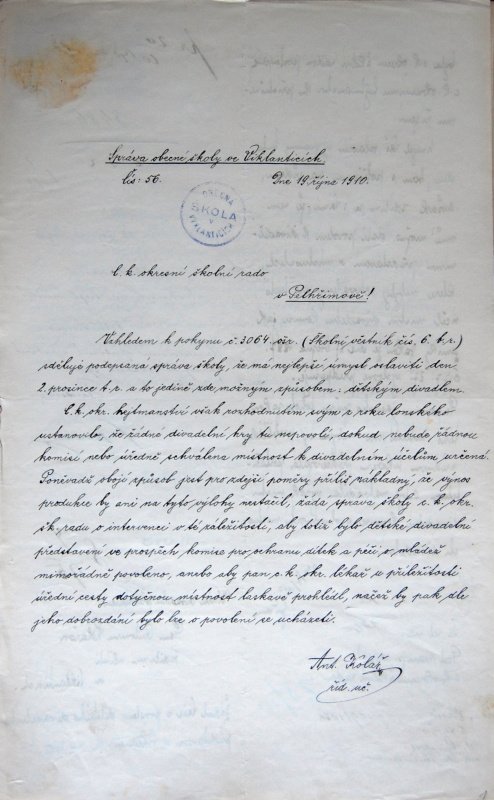 Správa obecné školy ve Vyklanticích
čís. 56.
Dne 19. října 1910.
OBECNÁ
ŠKOLA
V
VYKLANTICÍCH
C. k. okresní školní rado
v Pelhřimově!
Vzhledem k pokynu č. 3064 ošr. (Školní věstník čís. 6. b. r.)
sděluje podepsaná správa školy, že má nejlepší úmysl oslaviti den
2. prosince t. r. a to jedině zde možným způsobem: dětským divadlem.
C. k. okr. hejtmanství však rozhodnutím svým z roku loňského
ustanovilo, že řádné divadelní hry tu nepovolí, dokud nebude řádnou
komisí nebo úředně schválena místnost k divadelním účelům určená.
Poněvadž obojí způsob jest pro zdejší poměry příliš nákladný, že výnos
produkce by ani na tyto výlohy nestačil, žádá správa školy c. k. okr.
šk. radu o intervenci v té záležitosti, aby totiž bylo dětské divadelní
představení ve prospěch komise pro ochranu dítek a péči o mládež
mimořádně povoleno, anebo aby pan c. k. okr. lékař u příležitosti
úřední cesty dotyčnou místnost laskavě prohlédl, načež by pak dle
jeho dobrozdání bylo lze o povolení se ucházeti.
Ant. Kolář
říd. uč.